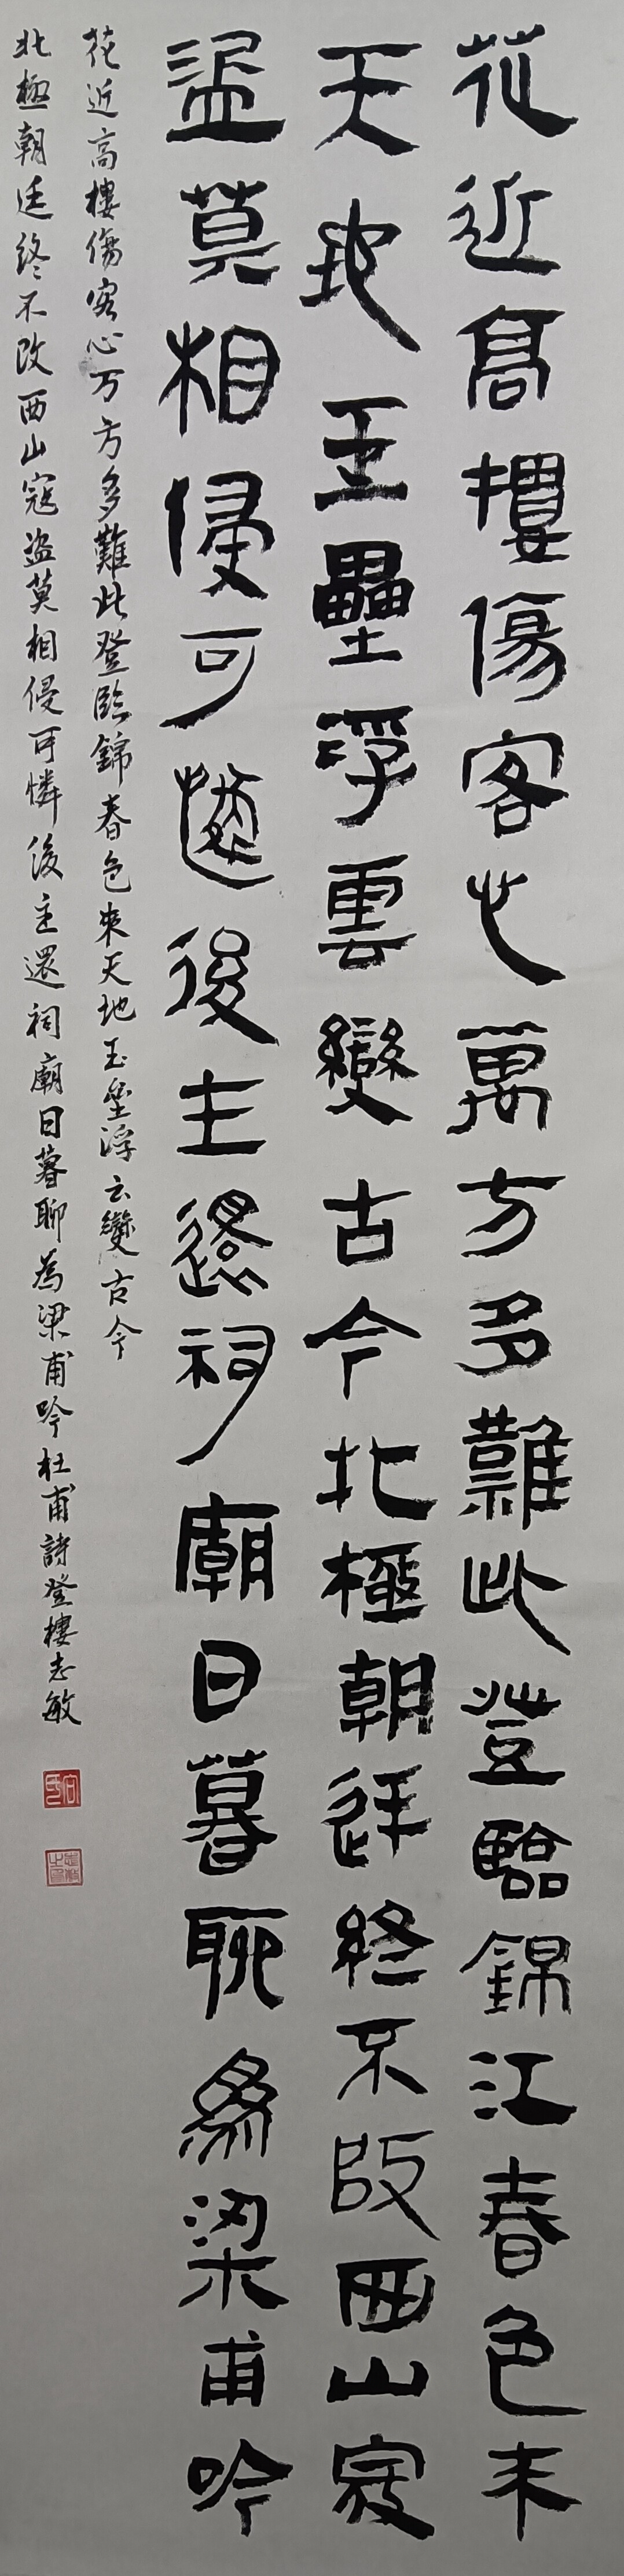 花近高樓傷客心萬方多難此登臨錦江春色来
天地玉壘浮雲變古今北極朝廷終不改西山寇
盗莫相侵可憐後主還祠廟日暮聊為梁甫吟
花近高樓傷客心万方多難此登臨錦春色来天地玉壘浮云變古今
北極朝廷終不改西山寇盗莫相侵可憐後主還祠廟日暮聊為梁甫吟杜甫詩登樓志敏